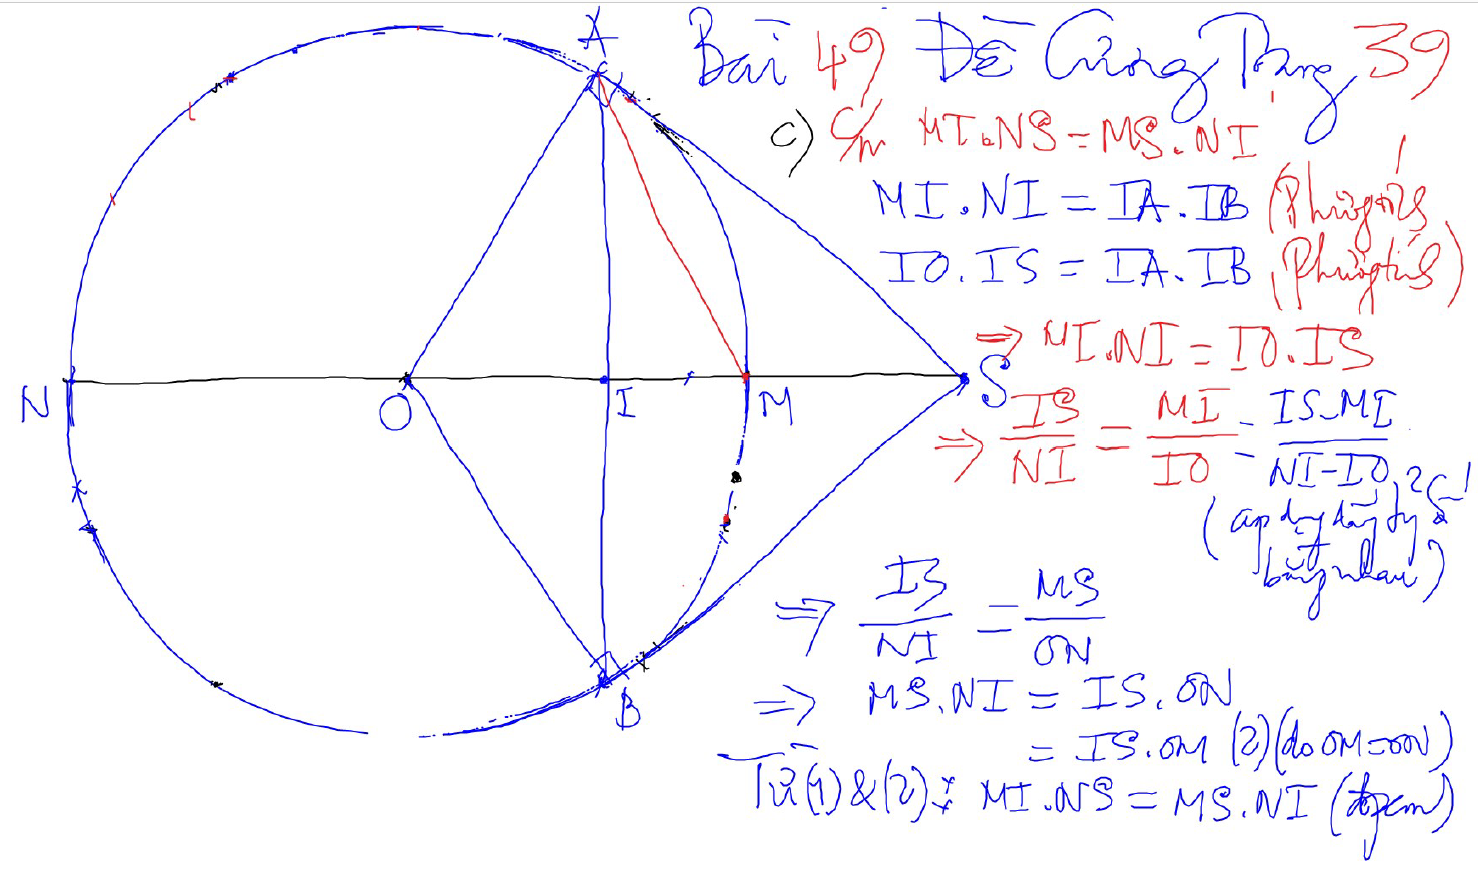 Bài 49 Đề Cương Trang 39
c) C/m MI.NS = MS.NI
MI.NI = IA.IB (Phương tích
IO.IS = IA.IB, Phương tích)
⇒ MI.NI = IO.IS
⇒ IS/NI = MI/IO = IS-MI/NI-IO
(áp dụng dãy tỷ số
bằng nhau)
⇒ IS/NI = MS/ON
⇒ MS.NI = IS.ON
= IS.OM (2) (do OM=ON)
Từ (1) & (2): MI.NS = MS.NI (đpcm)
A
N
O
I
M
S
B